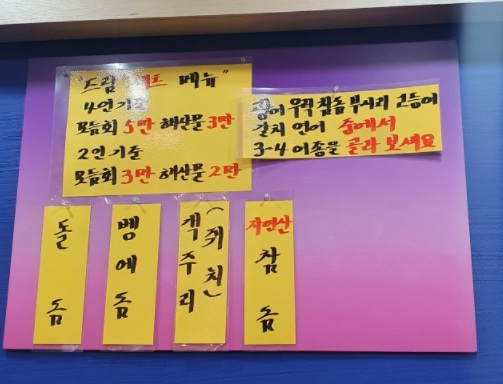 "드림 세트 메뉴"
4인 기준
모듬회 5만 해산물 3만
2인 기준
모듬회 3만 해산물 2만
광어 우럭 참돔 부시리 고등어
갈치 연어 중에서
3-4 어종을 골라 보세요
돌돔
벵에돔
객주리
(쥐치)
자연산
참돔